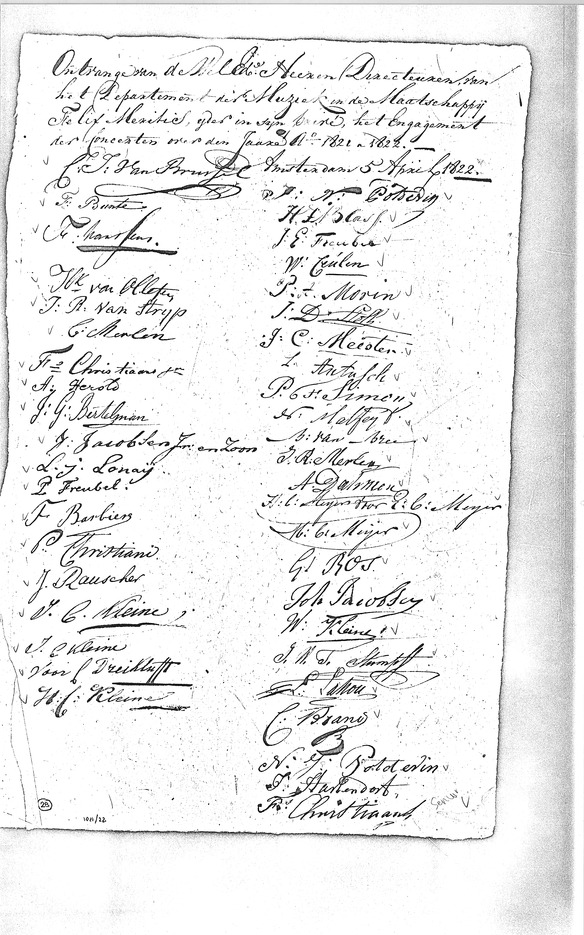 Ontvange van de Heeren Directeuren van
het Departement der Muziek in de Maatschappij
Felix Meritis, het Engagement
der Concerten over den Jaare Ao 1821 a 1822.
Amsterdam 5 April 1822.
F. Bunte
Fr. Hanssens.
van Olleffen
J: R. van Stryp
C: Merlen
Fs Christiaans Jr
Ay Herold
J: G: Bertelman
J. Jacobson Jr: en Zoon
L: J: Lonaÿ
P Freubel:
F Barbiers
P. Christiani
J. Rauscher
J. C. Kleine
J. C Kleine
Voor C Dreiklufft
H: C: Kleine
P: N: Potdevin
H D Blass
J: E: Freubel
W: Ceulen
P: F. Morin
J: D:
J: C: Meesten
L. Antusch
P: F: Simon
N: Malfeyt
B: van Bree
J. R: Merlen
A Dahmen
H: C: Meyer voor E: C: Meyer
H: C: Meyer
G: ROS.
Joh Jacobson
W: Kleine:
J. W. F. Stumpff
L. Sahou
C: Brand
N: J: Potdevin
J: Hartendorf,
Fs: Christiaans
Senior
28
1011/22